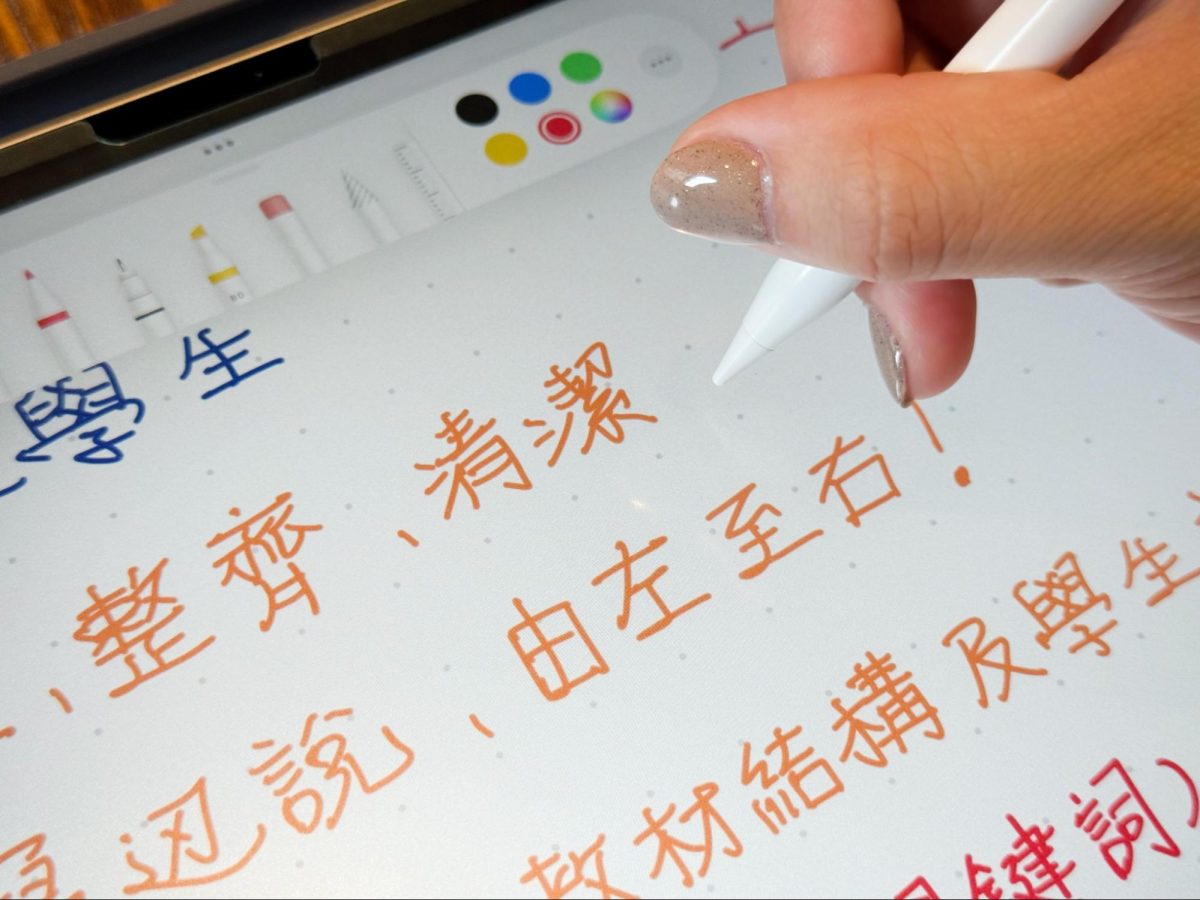 學生
、整齊、清潔
邊說、由左至右!
教材結構及學生
關鍵詞)